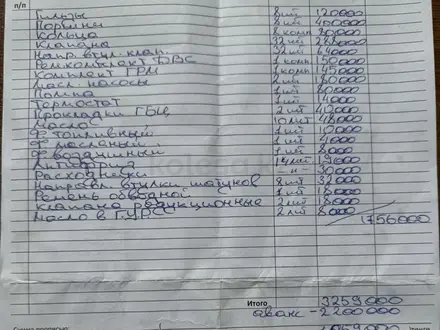 п/п
Гильзы 8 шт 120000
Поршни 8 шт 400000
Кольца 8 комп
Клапана 32 шт
Напр. втул. клап. 32 шт 64000
Ремкомплект ДВС 1 комп 150000
Комплект ГРМ 1 комп 145000
Масл. насосы 2 шт 180000
Помпа 1 шт 80000
Термостат 1 шт 14000
Прокладки ГБЦ 2 шт 40000
Масло 10 лит 48000
Ф топливный 1 шт 10000
Ф масленый 1 шт 4000
Ф воздушный 1 шт 8000
Антифриз 14 лит
Расходники -"- 30000
Направл. втулки шатунов 8 шт 32000
Ремень обводной 1 шт 18000
Клапана редукционные 2 шт 18000
Масло в ГУРСС 2 лит 8000
1756000
Итого 3259000
аванс - 2200000
1059000